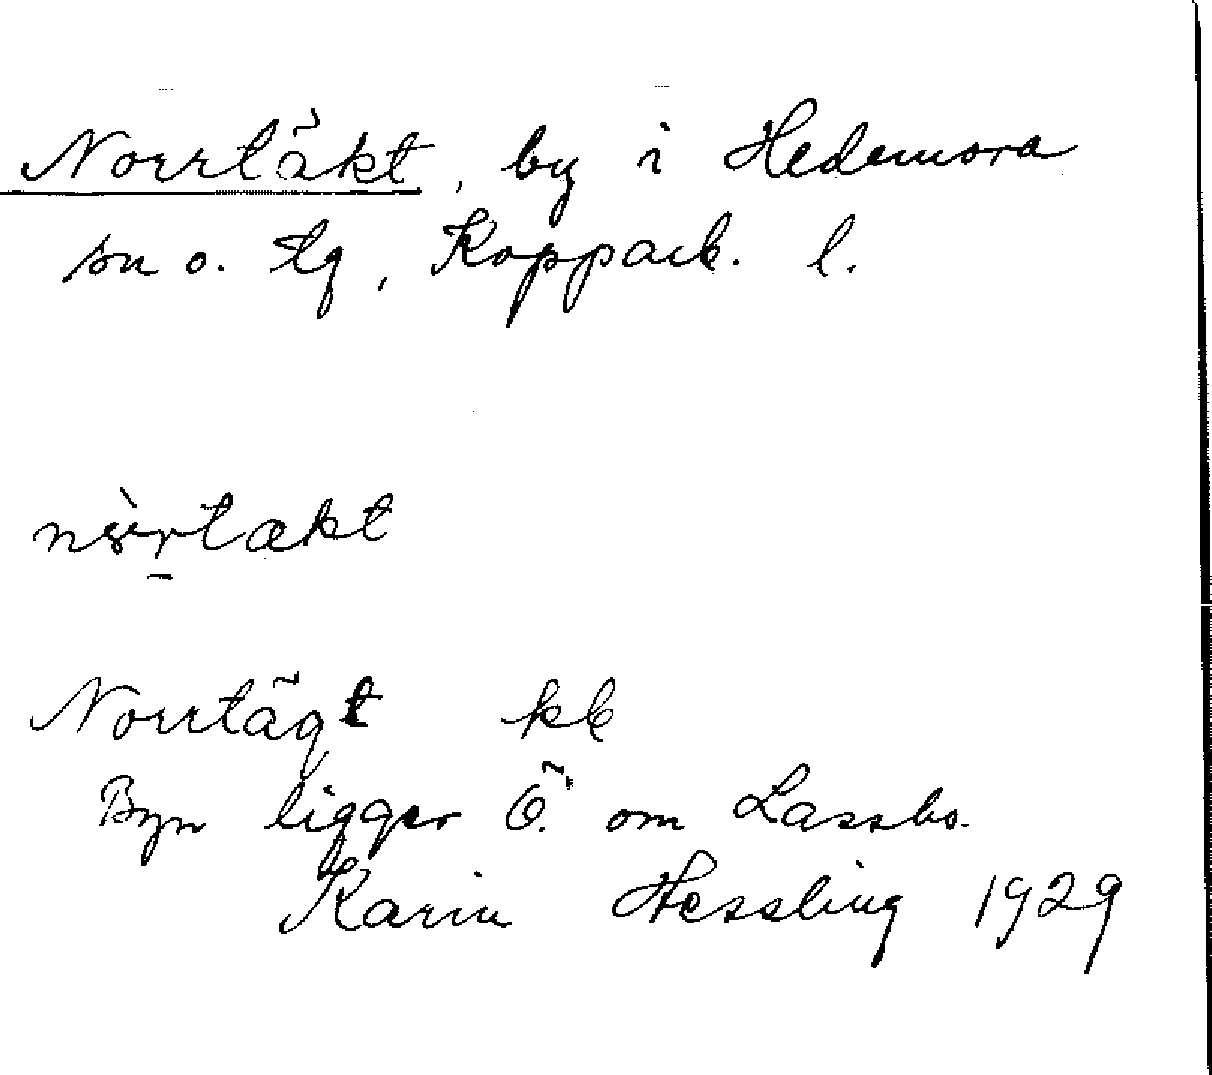 Norrtäkt, by i Hedemora
sn o. tg, Kopparb. l.
Norrtägt kb
Byn ligger Ö. om Lassbo.
Karin Hessling 1929